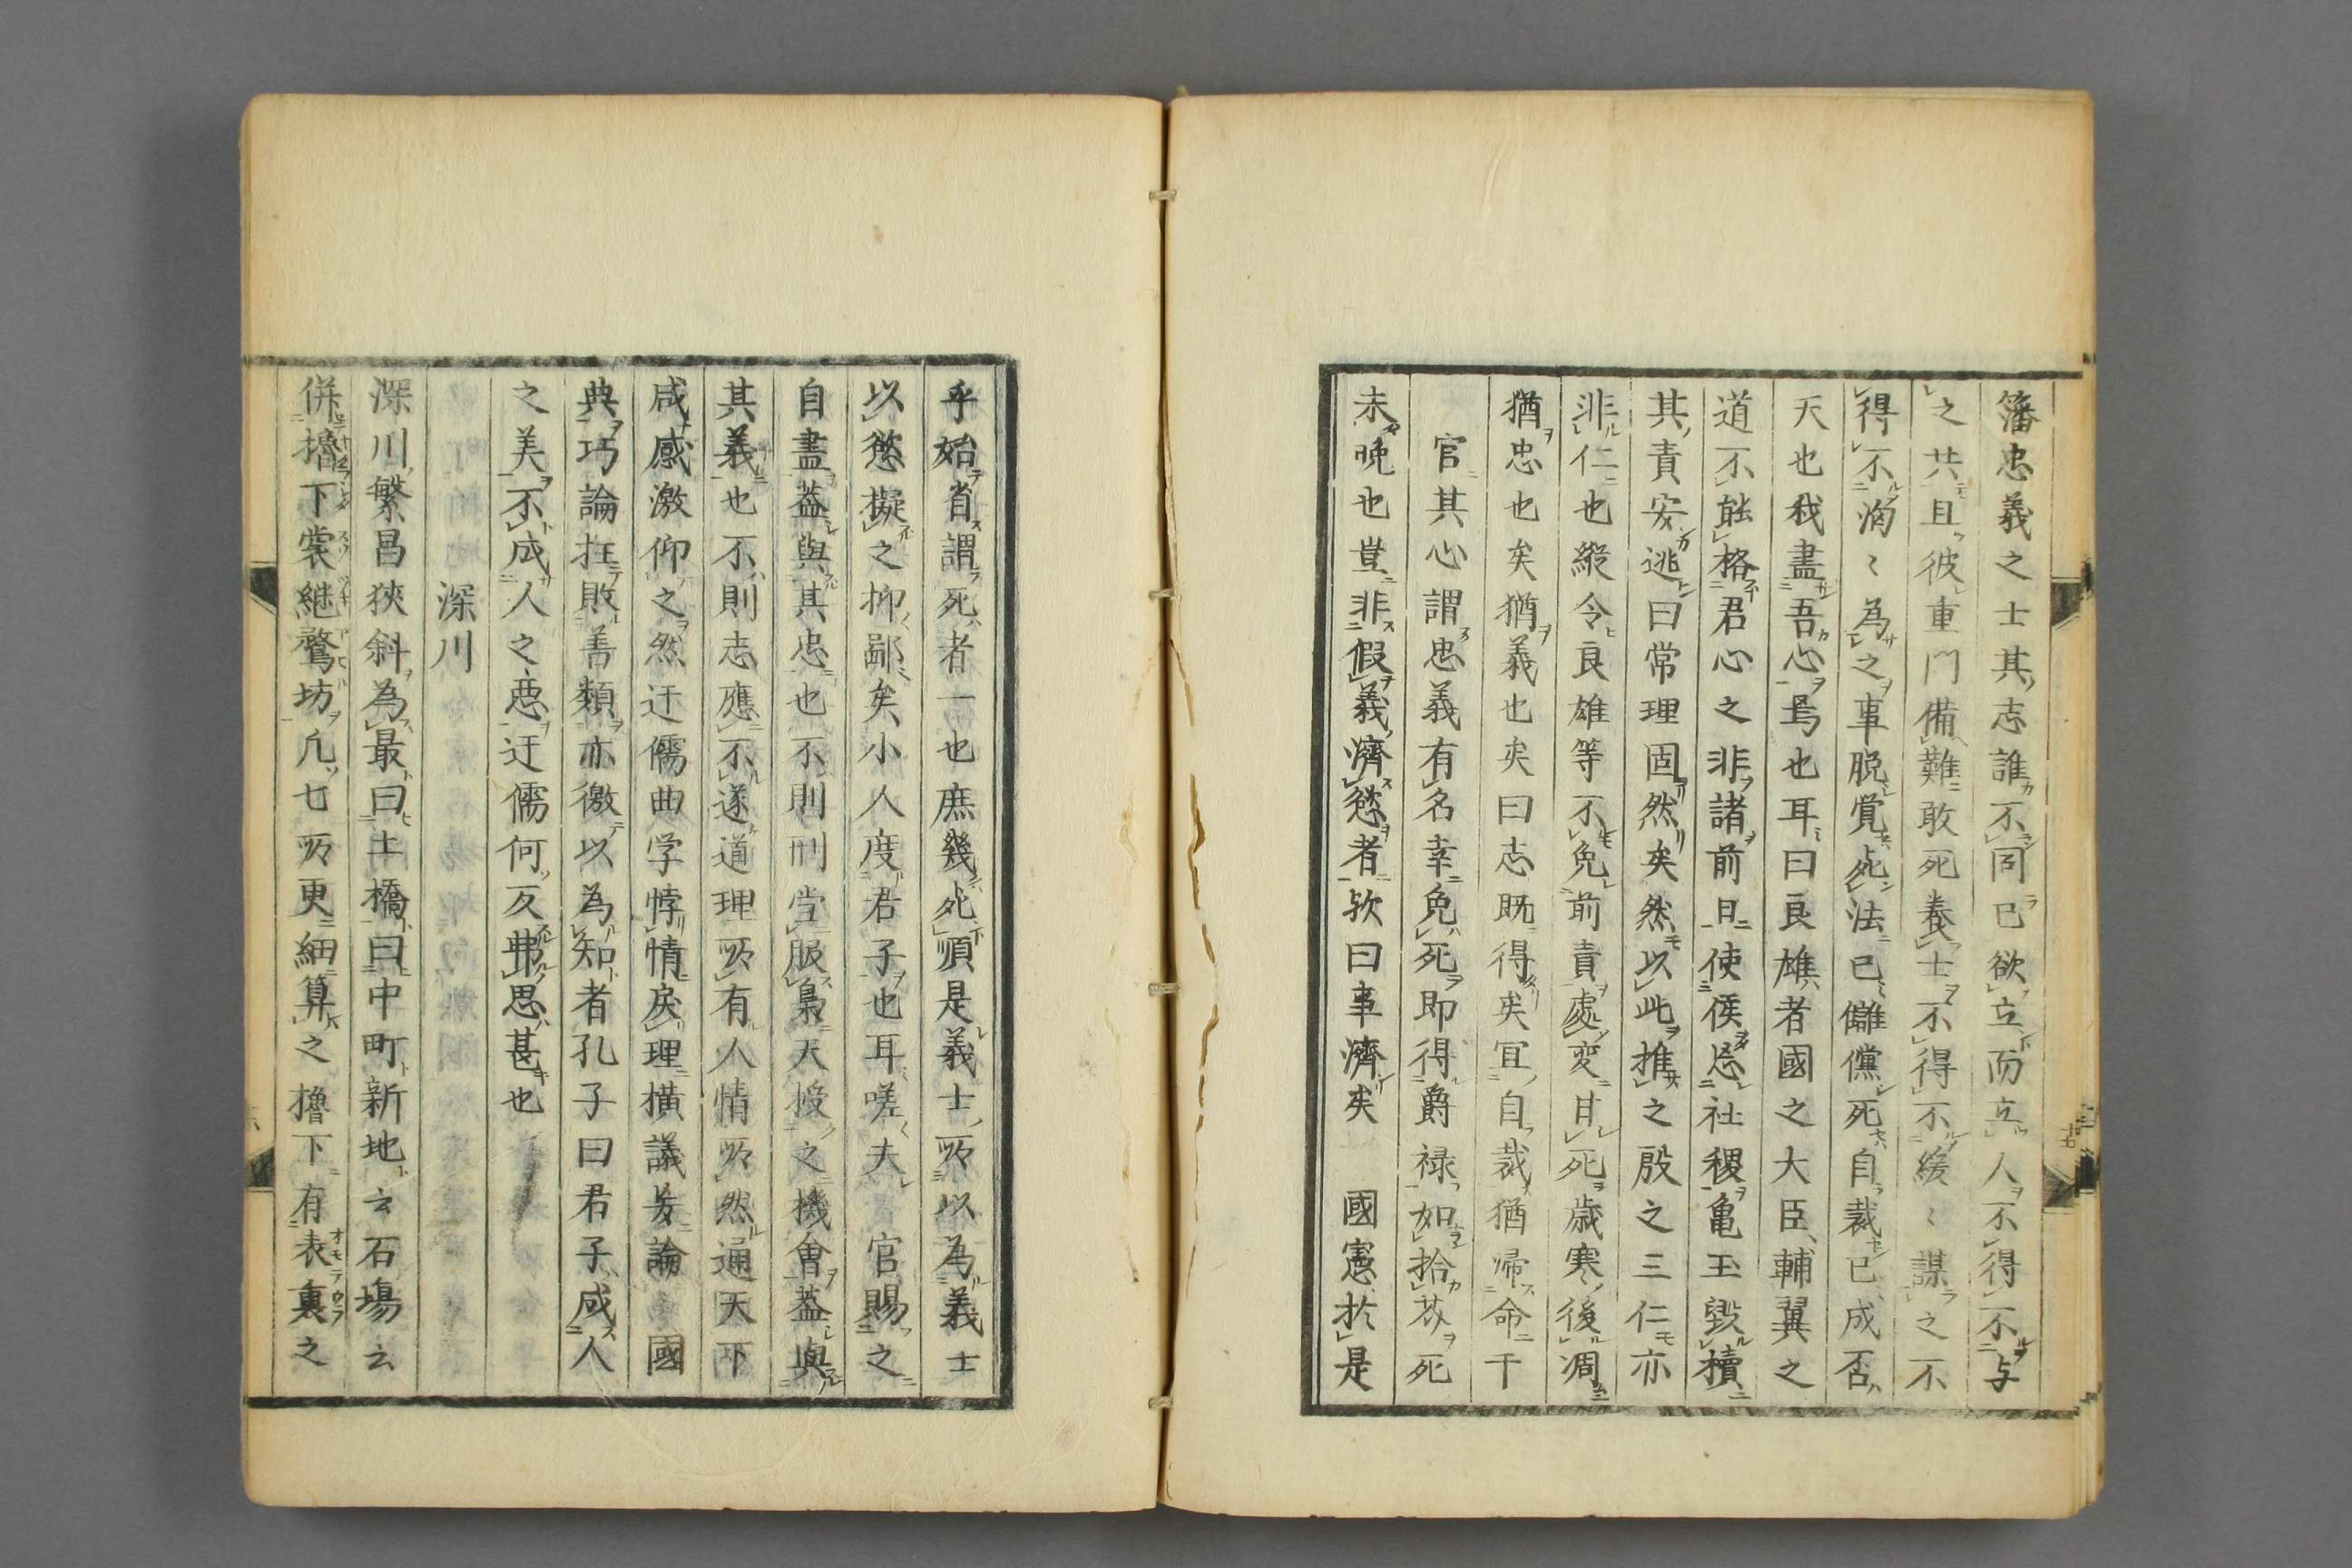 籓忠義之士其志誰不同已欲立而立人不得不与
之共且彼重門備難敢死養士不得不緩〻謀之不
得不㴞〻為之事脱覚死法已儲儻死自裁已成否
天也我盡吾心焉也耳曰良雄者國之大臣輔翼之
道不能格君心之非諸前日使侯忘社稷亀玉毀櫝
其責安逃曰常理固然矣然以此推之殷之三仁亦
非仁也縱令良雄等不免前責處変甘死歳寒後凋
猶忠也矣猶義也矣曰志既得矣宜自裁猶帰命于
官其心謂忠義有名幸免死即得爵禄如拾芥死
未晩也豈非假義濟慾者欤曰事濟矣 國憲於是
乎始省謂死者一也庶幾死順是義士所以為義士
以慾擬之抑鄙矣小人度君子也耳嗟夫官賜之
自盡葢與其忠也不則刑當服梟天授之機會葢與
其義也不則志應不遂道理所有人情所然通天下
咸感激仰之然迂儒曲学悖情戻理横議妨論 國
典巧論拄敗善類亦徼以為知者孔子曰君子成人
之美不成人之悪迂儒何反弗思甚也
深川
深川繁昌狹斜為最曰土橋曰中町新地云石場云
併擼下裳継鶩坊凡七所更細算之擼下有表裏之
オモテウラ